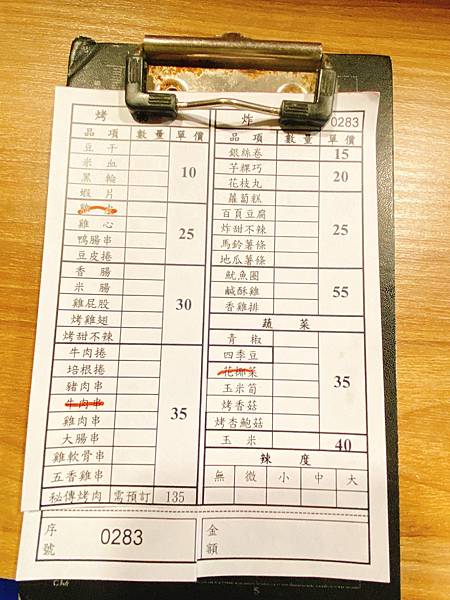 烤
品項 數量 單價
豆干
米血
黑輪
蝦片
10
雞心
鴨腸串
豆皮捲
25
香腸
米腸
雞屁股
烤雞翅
烤甜不辣
30
牛肉捲
培根捲
豬肉串
牛肉串
雞肉串
大腸串
雞軟骨串
五香雞串
35
秘傳烤肉 需預訂 135
炸 0283
品項 數量 單價
銀絲卷 15
芋粿巧
花枝丸
20
蘿蔔糕
百頁豆腐
炸甜不辣
馬鈴薯條
地瓜薯條
25
魷魚圈
鹹酥雞
香雞排
55
蔬菜
青椒
四季豆
花椰菜
玉米筍
烤香菇
烤杏鮑菇
35
玉米 40
辣度
無 微 小 中 大
序號 0283
金額